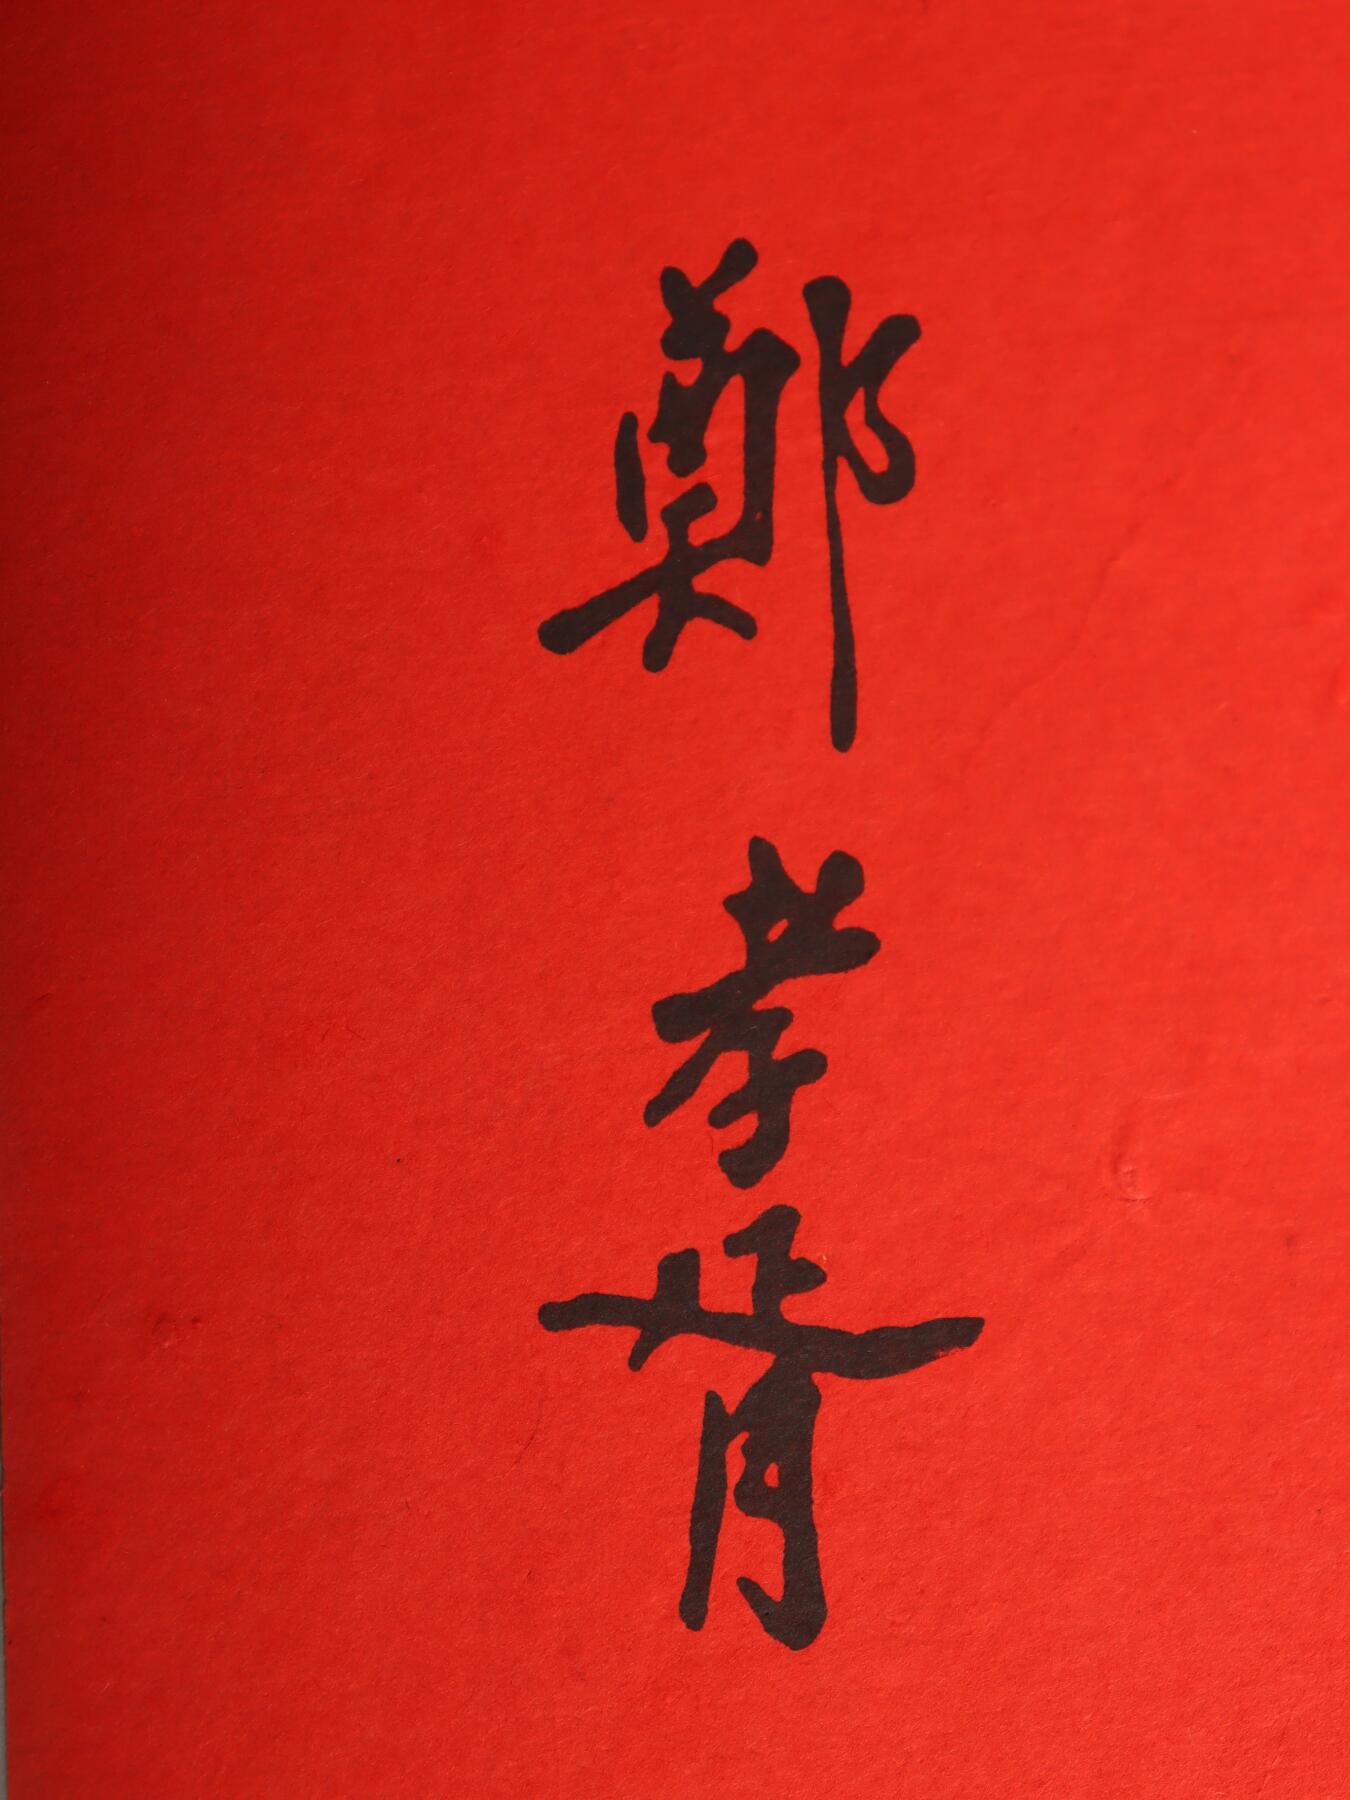 鄭孝胥